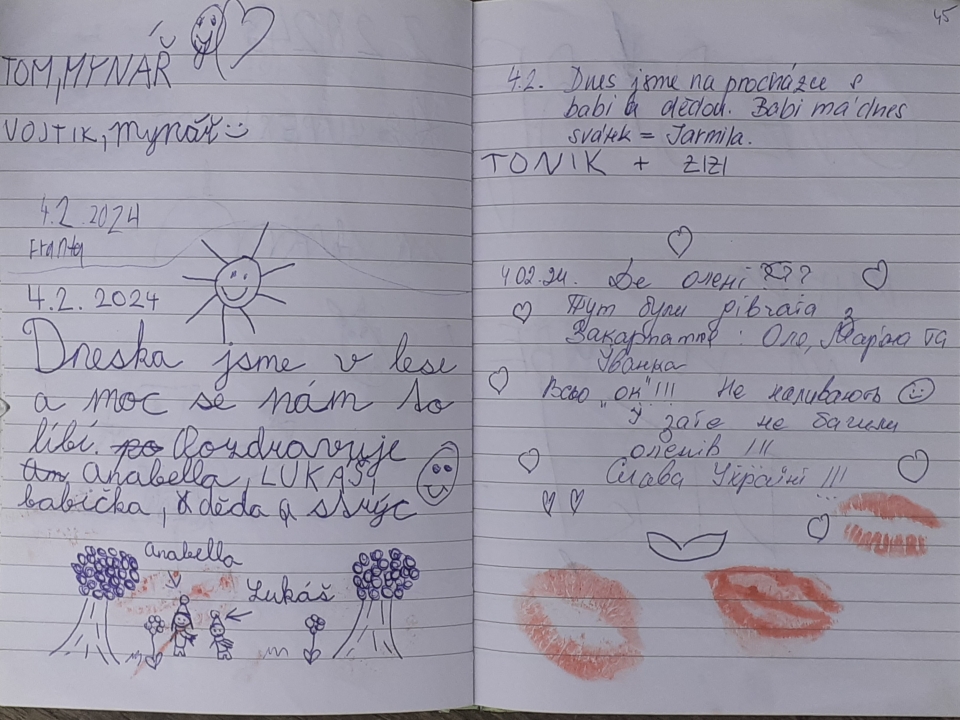 TOM, MYNAŘ
VOJTIK, Mynář
4.2.2024
Franta
4.2.2024
Dneska jsme v lese
a moc se nám to
líbí. Pozdravuje
Anabella, LUKÁŠ,
babička, děda a strýc
Anabella
Lukáš
45
4.2. Dnes jsme na procházce s
babi a dědou. Babi má dnes
svátek = Jarmila.
TONIK + ZIZI
4 02.24. Де олені ??
Тут були дівчата з
Закарпаття : Оля, Мар'яна та
Іванна
Всьо "ок" !!! Не наливають
зате не бачили
оленів !!!
Слава Україні !!!